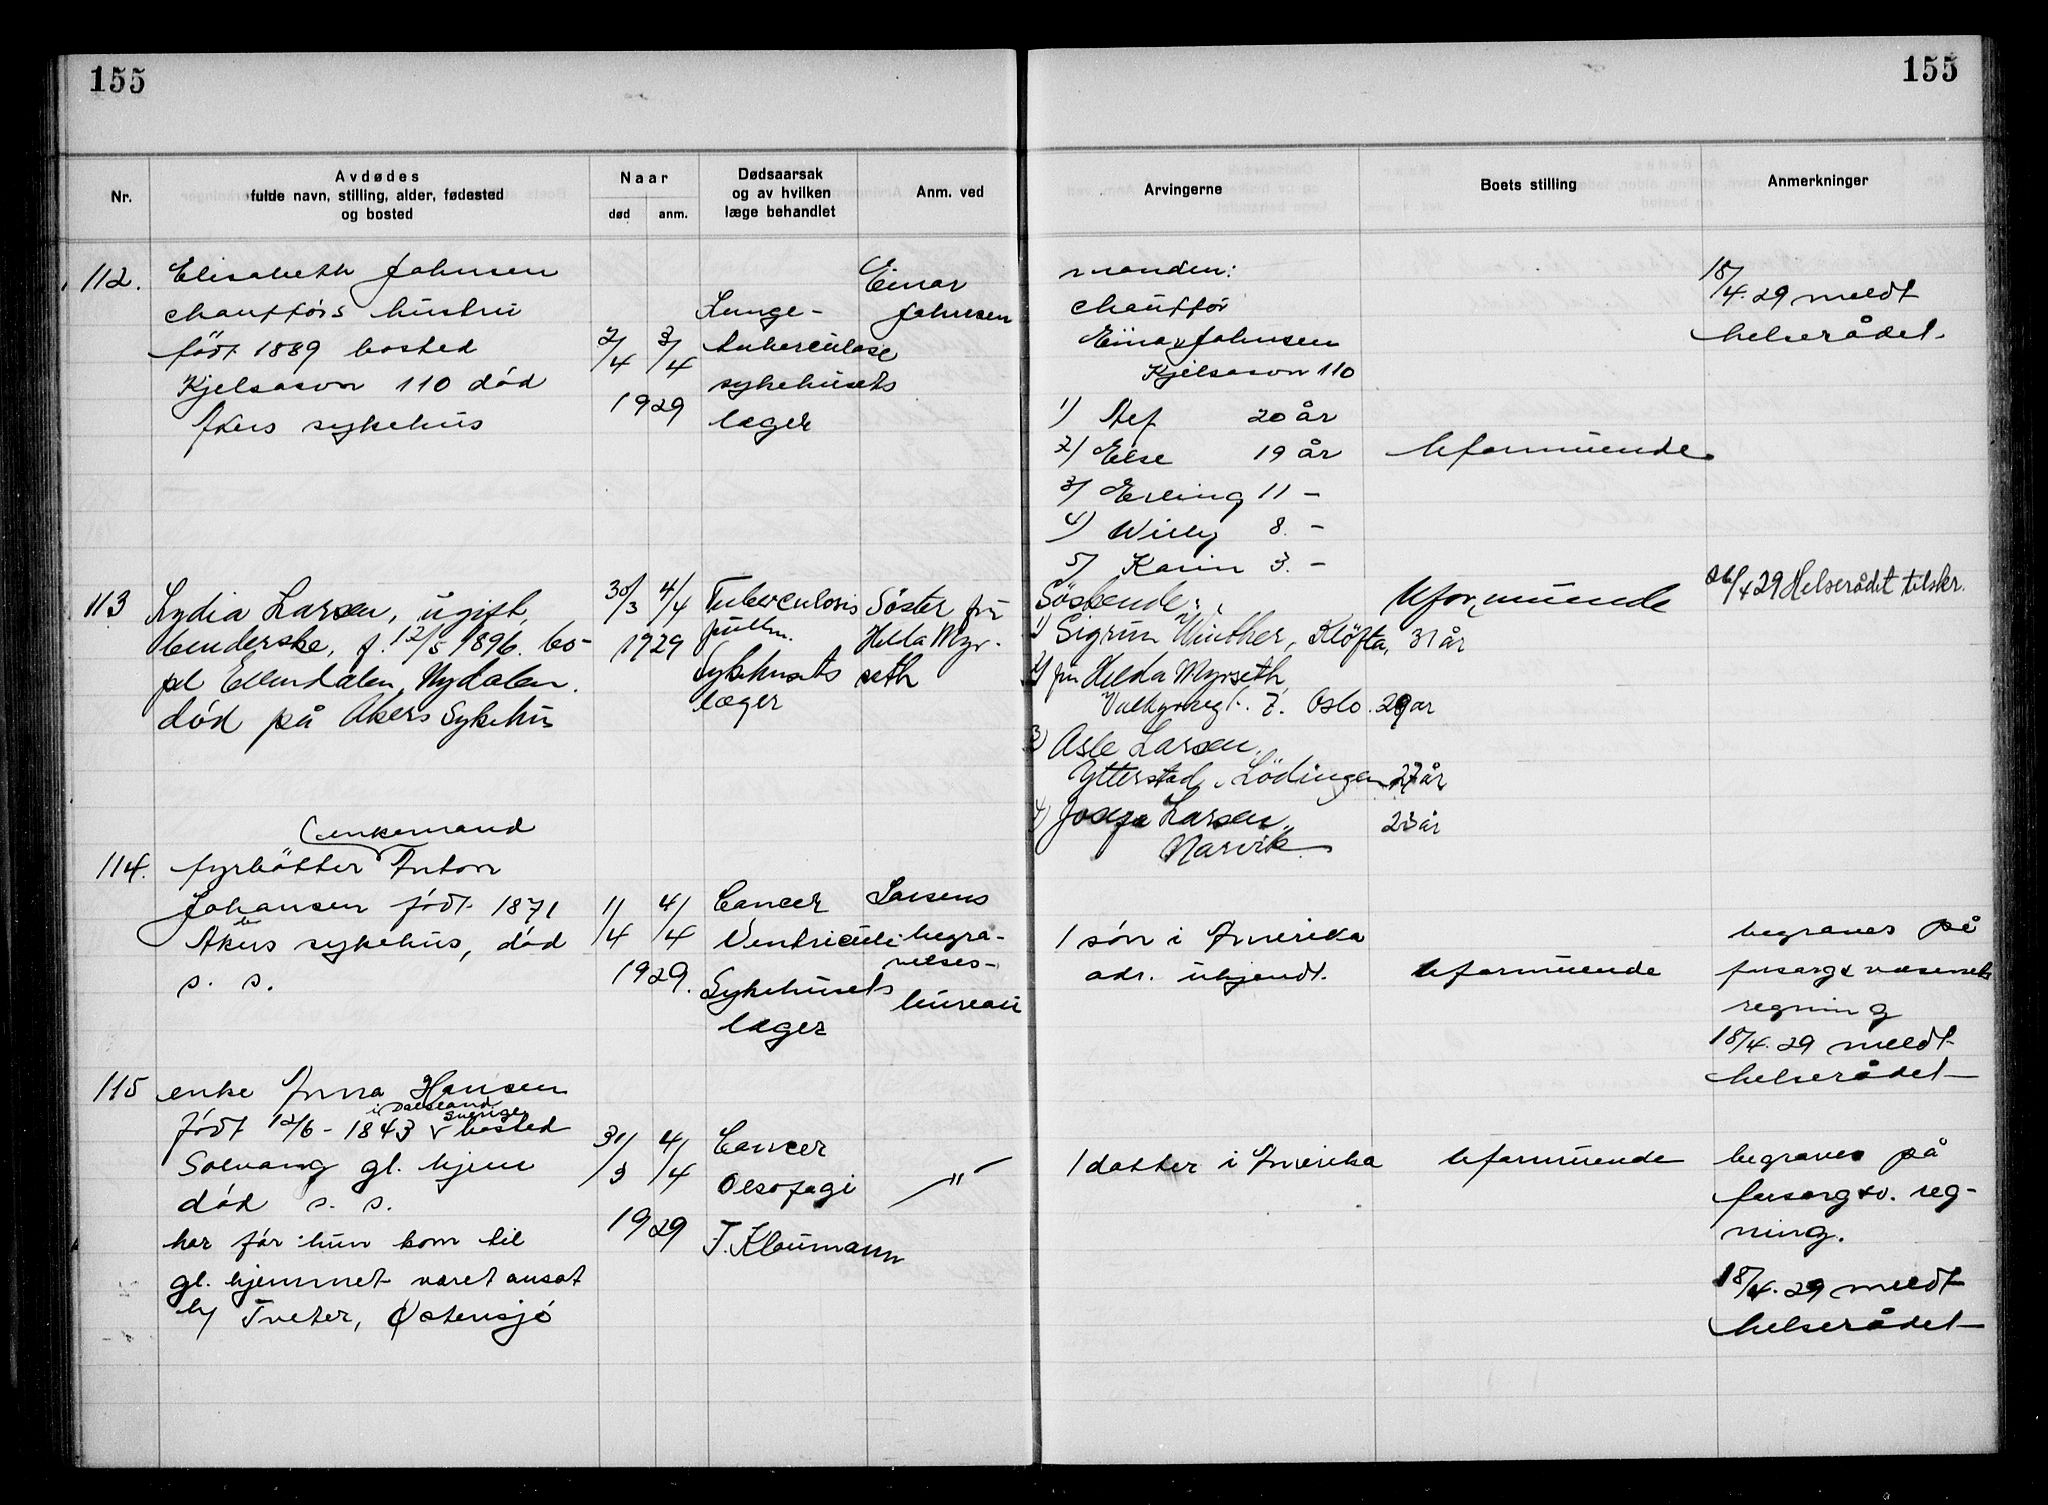 155
155
Nr.
Avdødes
fulde navn, stilling, alder, fødested
og bosted
Naar
død
anm.
Dødsaarsak
og av hvilken
læge behandlet
Anm. ved
Arvingerne
Boets stilling
Anmerkninger
112.
Elisabeth Johnsen
chaufførs hustru
født 1889 bosted
Kjelsåsvn 110 død
Akers sykehus
2/4 3/4
1929
Lunge-
tuberculose
sykehusets
læger
Einar
Johnsen
manden:
chauffør
Einar Johnsen
Kjelsåsvn 110
1) Alf 20 år
2) Else 19 år
3) Erling 11 -
4) Willy 8. -
5) Karin 3. -
Uformuende
18/4.29 meldt
helserådet.
113
Lydia Larsen, ugift,
f. 12/5 1896. bo-
pl Ellendalen, Nydalen.
død på Akers Sykehus
30/3 4/4
1929
Tuberculosis
pulm.
Sykehusets
læger
Søster fru
Hilda Myr-
seth
Søskende:
1) Sigrun Winther, Kløfta, 31 år
2) fru Hilda Myrseth
7. Oslo. 29 år
3) Asle Larsen,
Ytterstad, Lödingen 27 år
4) Josefa Larsen,
Narvik
23 år
Uformuende
26/4 29 Helserådet tilskr.
114.
(enkemand
fyrbøtter Anton
Johansen født 1871
Akers sykehus, død
s. s.
1/4 4/4
1929.
Cancer
Ventriculi
Sykehusets
læger
Larsens
begra-
velses-
bureau
1 søn i Amerika
adr. ukjendt.
Uformuende
begraves på
forsorgsvæsenets
regning
18/4.29 meldt
helserådet
115
enke Anna Hansen
i Dalsland
Sverige
født 12/6 - 1843 bosted
Solvang gl. hjem
død s. s.
har før hun kom til
gl. hjemmet været ansat
by Tveter, Østensjø
31/3 4/4
1929
Cancer
Oesofagi
T. Klaumann
"
1 datter i Amerika
Uformuende
begraves på
forsorgsv. reg-
ning.
18/4.29 meldt
helserådet